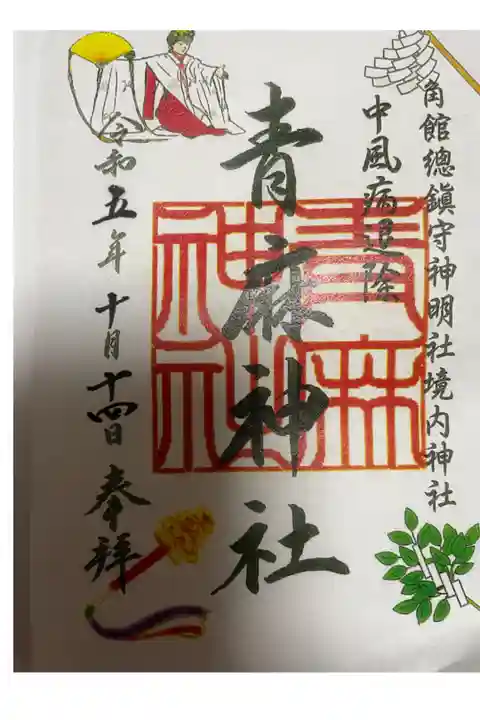 角館總鎮守神明社境内神社
中風病退除
青麻神社
青麻神社
令和五年十月十四日奉拝